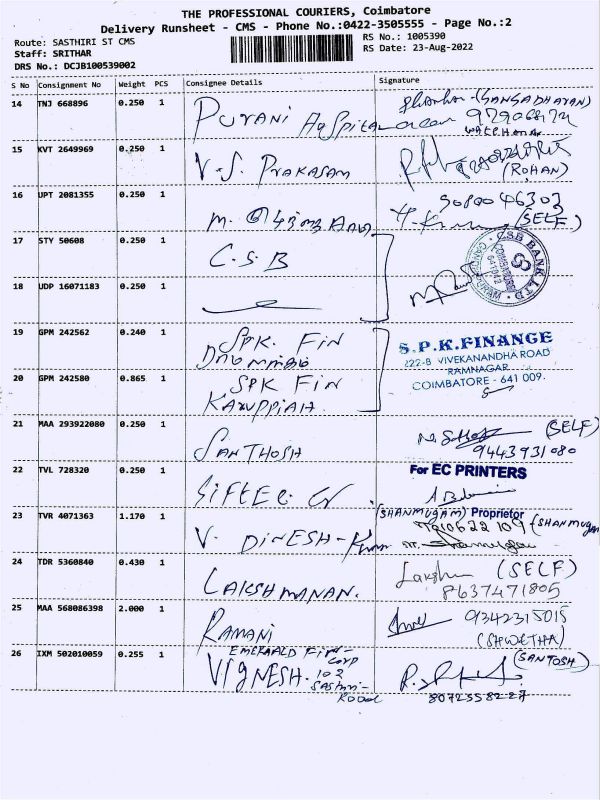 THE PROFESSIONAL COURIERS, Coimbatore
Delivery Runsheet - CMS - Phone No.:0422-3505555 - Page No.:2
Route: SASTHIRI ST CMS
RS No.: 1005390
Staff: SRITHAR
RS Date: 23-Aug-2022
DRS No.: DCJB100539002
S No Consignment No Weight PCS Consignee Details Signature
14 TNJ 668896 0.250 1 PURANI Hospital (GANGADHARAN)
15 KVT 2649969 0.250 1 V.S. PRAKASAM (ROHAN)
16 UPT 2081355 0.250 1 M. 9080046303 (SELF)
17 STY 50608 0.250 1 C.S.B CSB BANK LTD.
18 UDP 16071183 0.250 1
19 GPM 242562 0.240 1 SPK. FIN
S.P.K.FINANCE
222-B VIVEKANANDHA ROAD
RAMNAGAR
COIMBATORE - 641 009.
20 GPM 242580 0.865 1 SPK FIN
KARUPPIAH.
21 MAA 293922080 0.250 1 SANTHOSH (SELF)
9443931080
22 TVL 728320 0.250 1 For EC PRINTERS
(SHANMUGAM) Proprietor
23 TVR 4071363 1.170 1 V. DINESH-Kumar (SHANMUGAM
24 TDR 5360840 0.430 1 LAKSHMANAN. (SELF)
8637471805
25 MAA 568086398 2.000 1 RAMANI 9342315015
(SHWETHA)
26 IXM 502010059 0.255 1 EMERALD FIN-CORP (SANTOSH)
VIGNESH. 102
Sasthri-
Road 8072558227